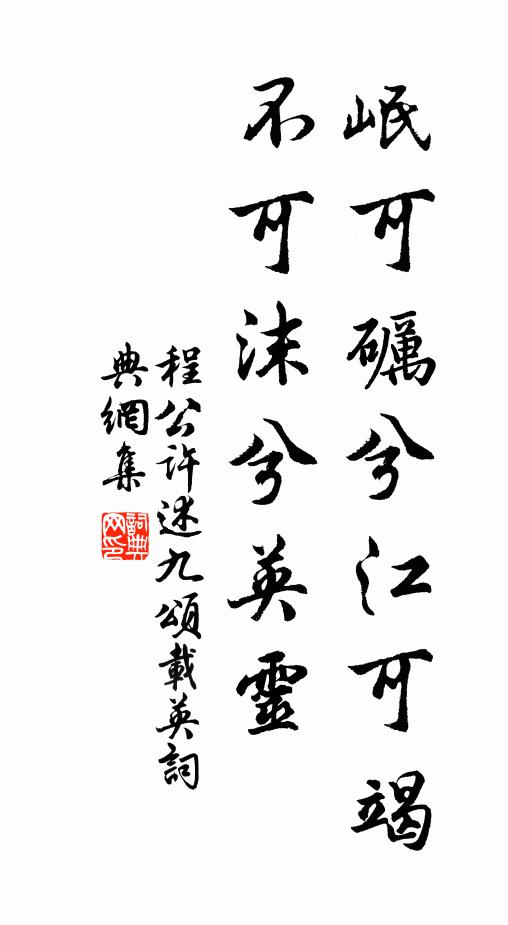 岷可礪兮江可竭
不可沫兮英靈
程公許述九頌載英詞
典網集
詞典網印